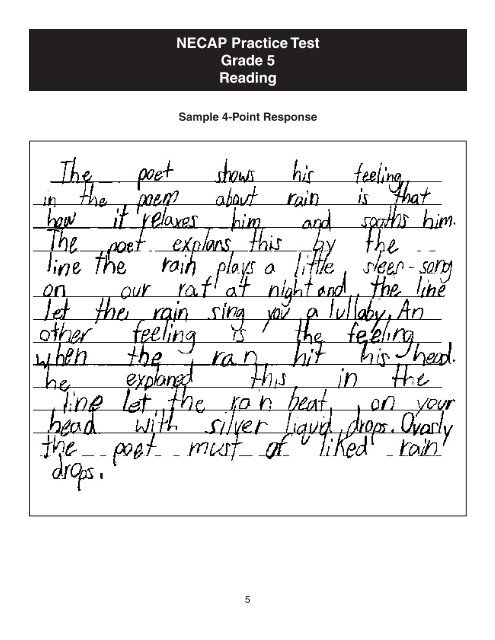 NECAP Practice Test
Grade 5
Reading
Sample 4-Point Response
The poet shows his feeling
in the poem about rain is that
how it relaxes him and sooths him.
The poet explans this by the
line the rain plays a little sleep-song
on our raf at night and the line
let the rain sing you a lullaby. An
other feeling is the feeling
when the ran hit his head.
he explaned this in the
line let the rain beat on your
head with silver liquid drops. Ovarly
the poet must of liked rain
drops.
5